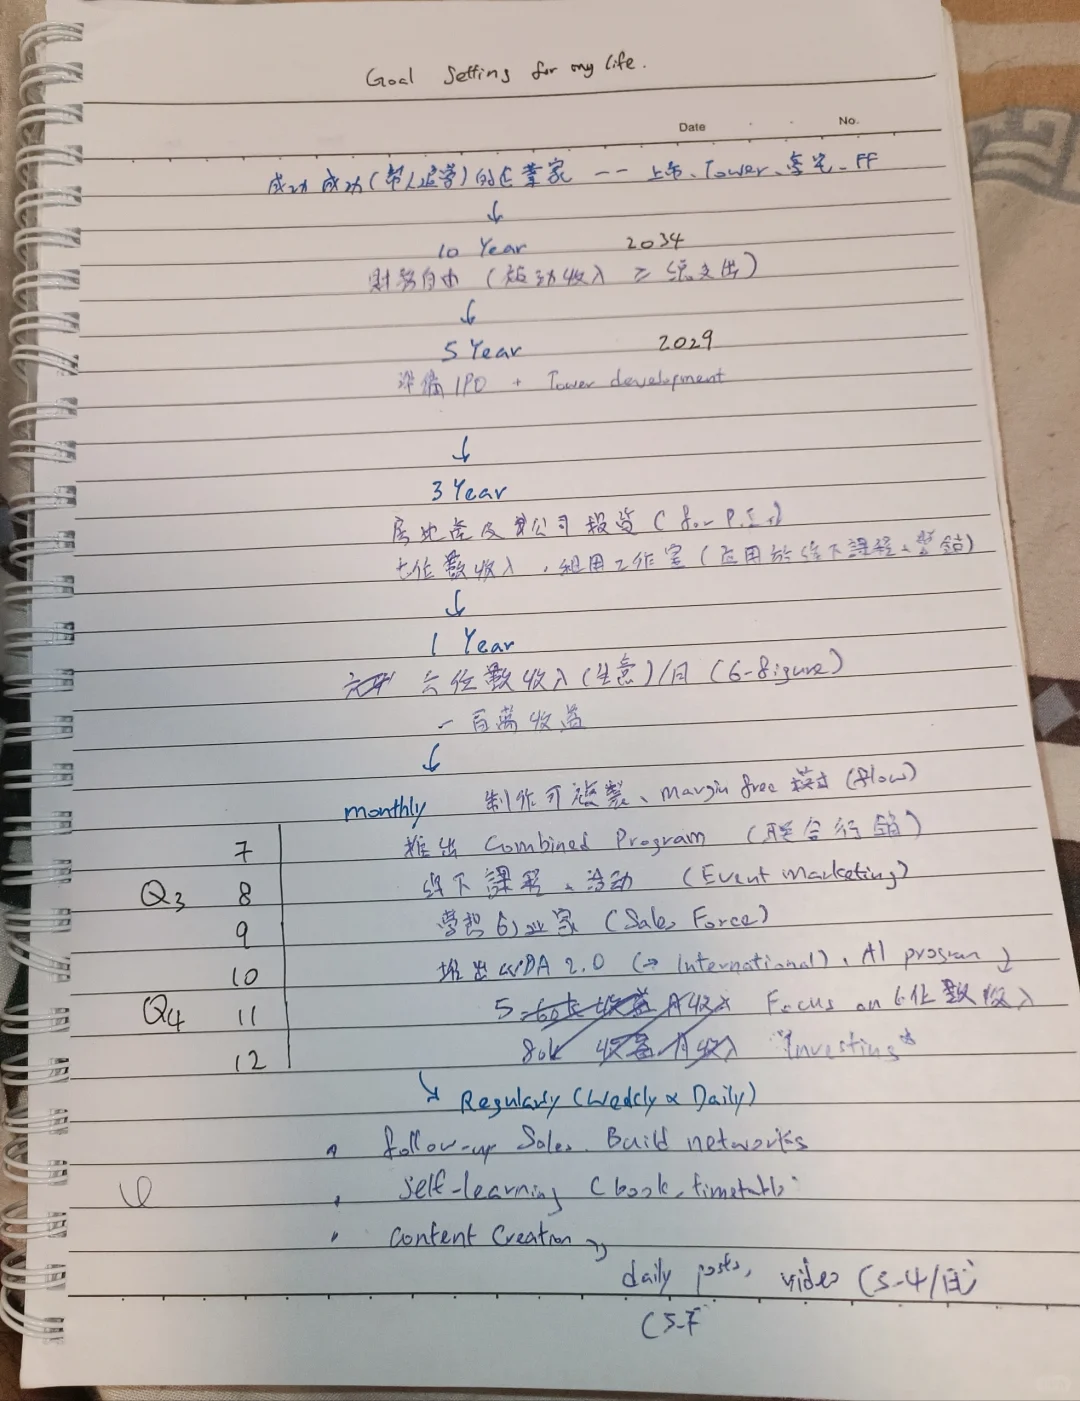 Goal Setting for my life.
Date No.
成功 成功(帶人追夢)的企業家 -- 上市、Tower、FF
↓
10 Year 2034
財務自由 (被动收入 ≥ 总支出)
↓
5 Year 2029
準備 IPO + Tower development
↓
3 Year
房地產及公司投資 (for P.I.)
七位數收入,租用工作室(应用於线下課程、營銷)
↓
1 Year
六位數收入(生意)/月 (6-figure)
一百萬收益
↓
monthly 制作可複製、margin free 模式 (flow)
7 推出 Combined Program (联合行銷)
Q3 8 线下課程、活动 (Event marketing)
9 学習创业家 (Sales Force)
10 推出 2.0 (→ International)、AI program
Q4 11 Focus on 6位數收入
12 80k 收益月收入 "Investing"
↘ Regularly (Weekly & Daily)
• follow-up Sales. Build networks
• self-learning (book, timetable
• content creation
daily posts, video (3-4/日)
(5-7